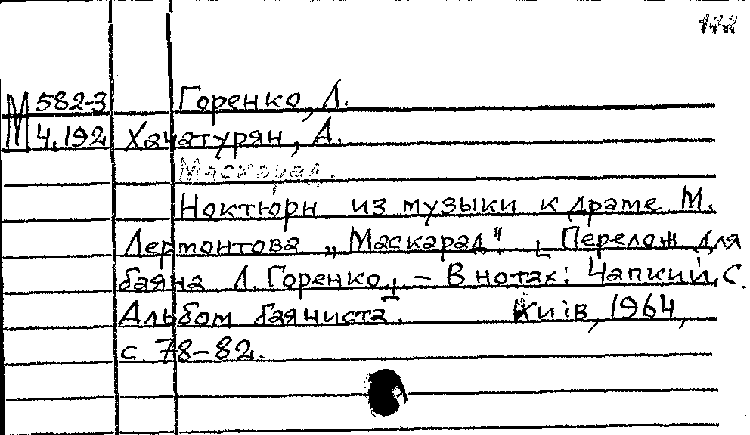 М 582-3 Горенко, Л.
4.192 Хачатурян, А.
Маскарад.
Ноктюрн из музыки к драме М.
Лермонтова „Маскарад". [Перелож для
баяна Л. Горенко.] – В нотах: Чапкий, С.
Альбом баяниста. Київ, 1964,
с 78–82.